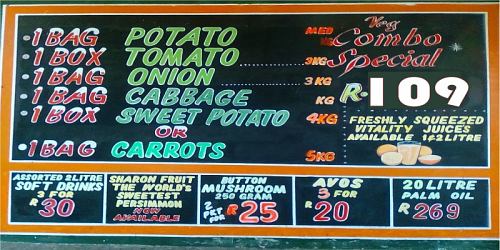 1 BAG POTATO MED KG
1 BOX TOMATO 3KG
1 BAG ONION 3 KG
1 BAG CABBAGE KG
1 BOX SWEET POTATO 4KG
OR
1 BAG CARROTS 5KG
Veg
Combo
Special
R- 109
FRESHLY SQUEEZED
VITALITY JUICES
AVAILABLE 1&2 LITRE
ASSORTED 2 LITRE
SOFT DRINKS
3 FOR
R 30
SHARON FRUIT
THE WORLD'S
SWEETEST
PERSIMMON
NOW
AVAILABLE
BUTTON
MUSHROOM
250 GRAM
2 PKT FOR R 25
AVOS
3 FOR
R 20
20 LITRE
PALM OIL
R 269